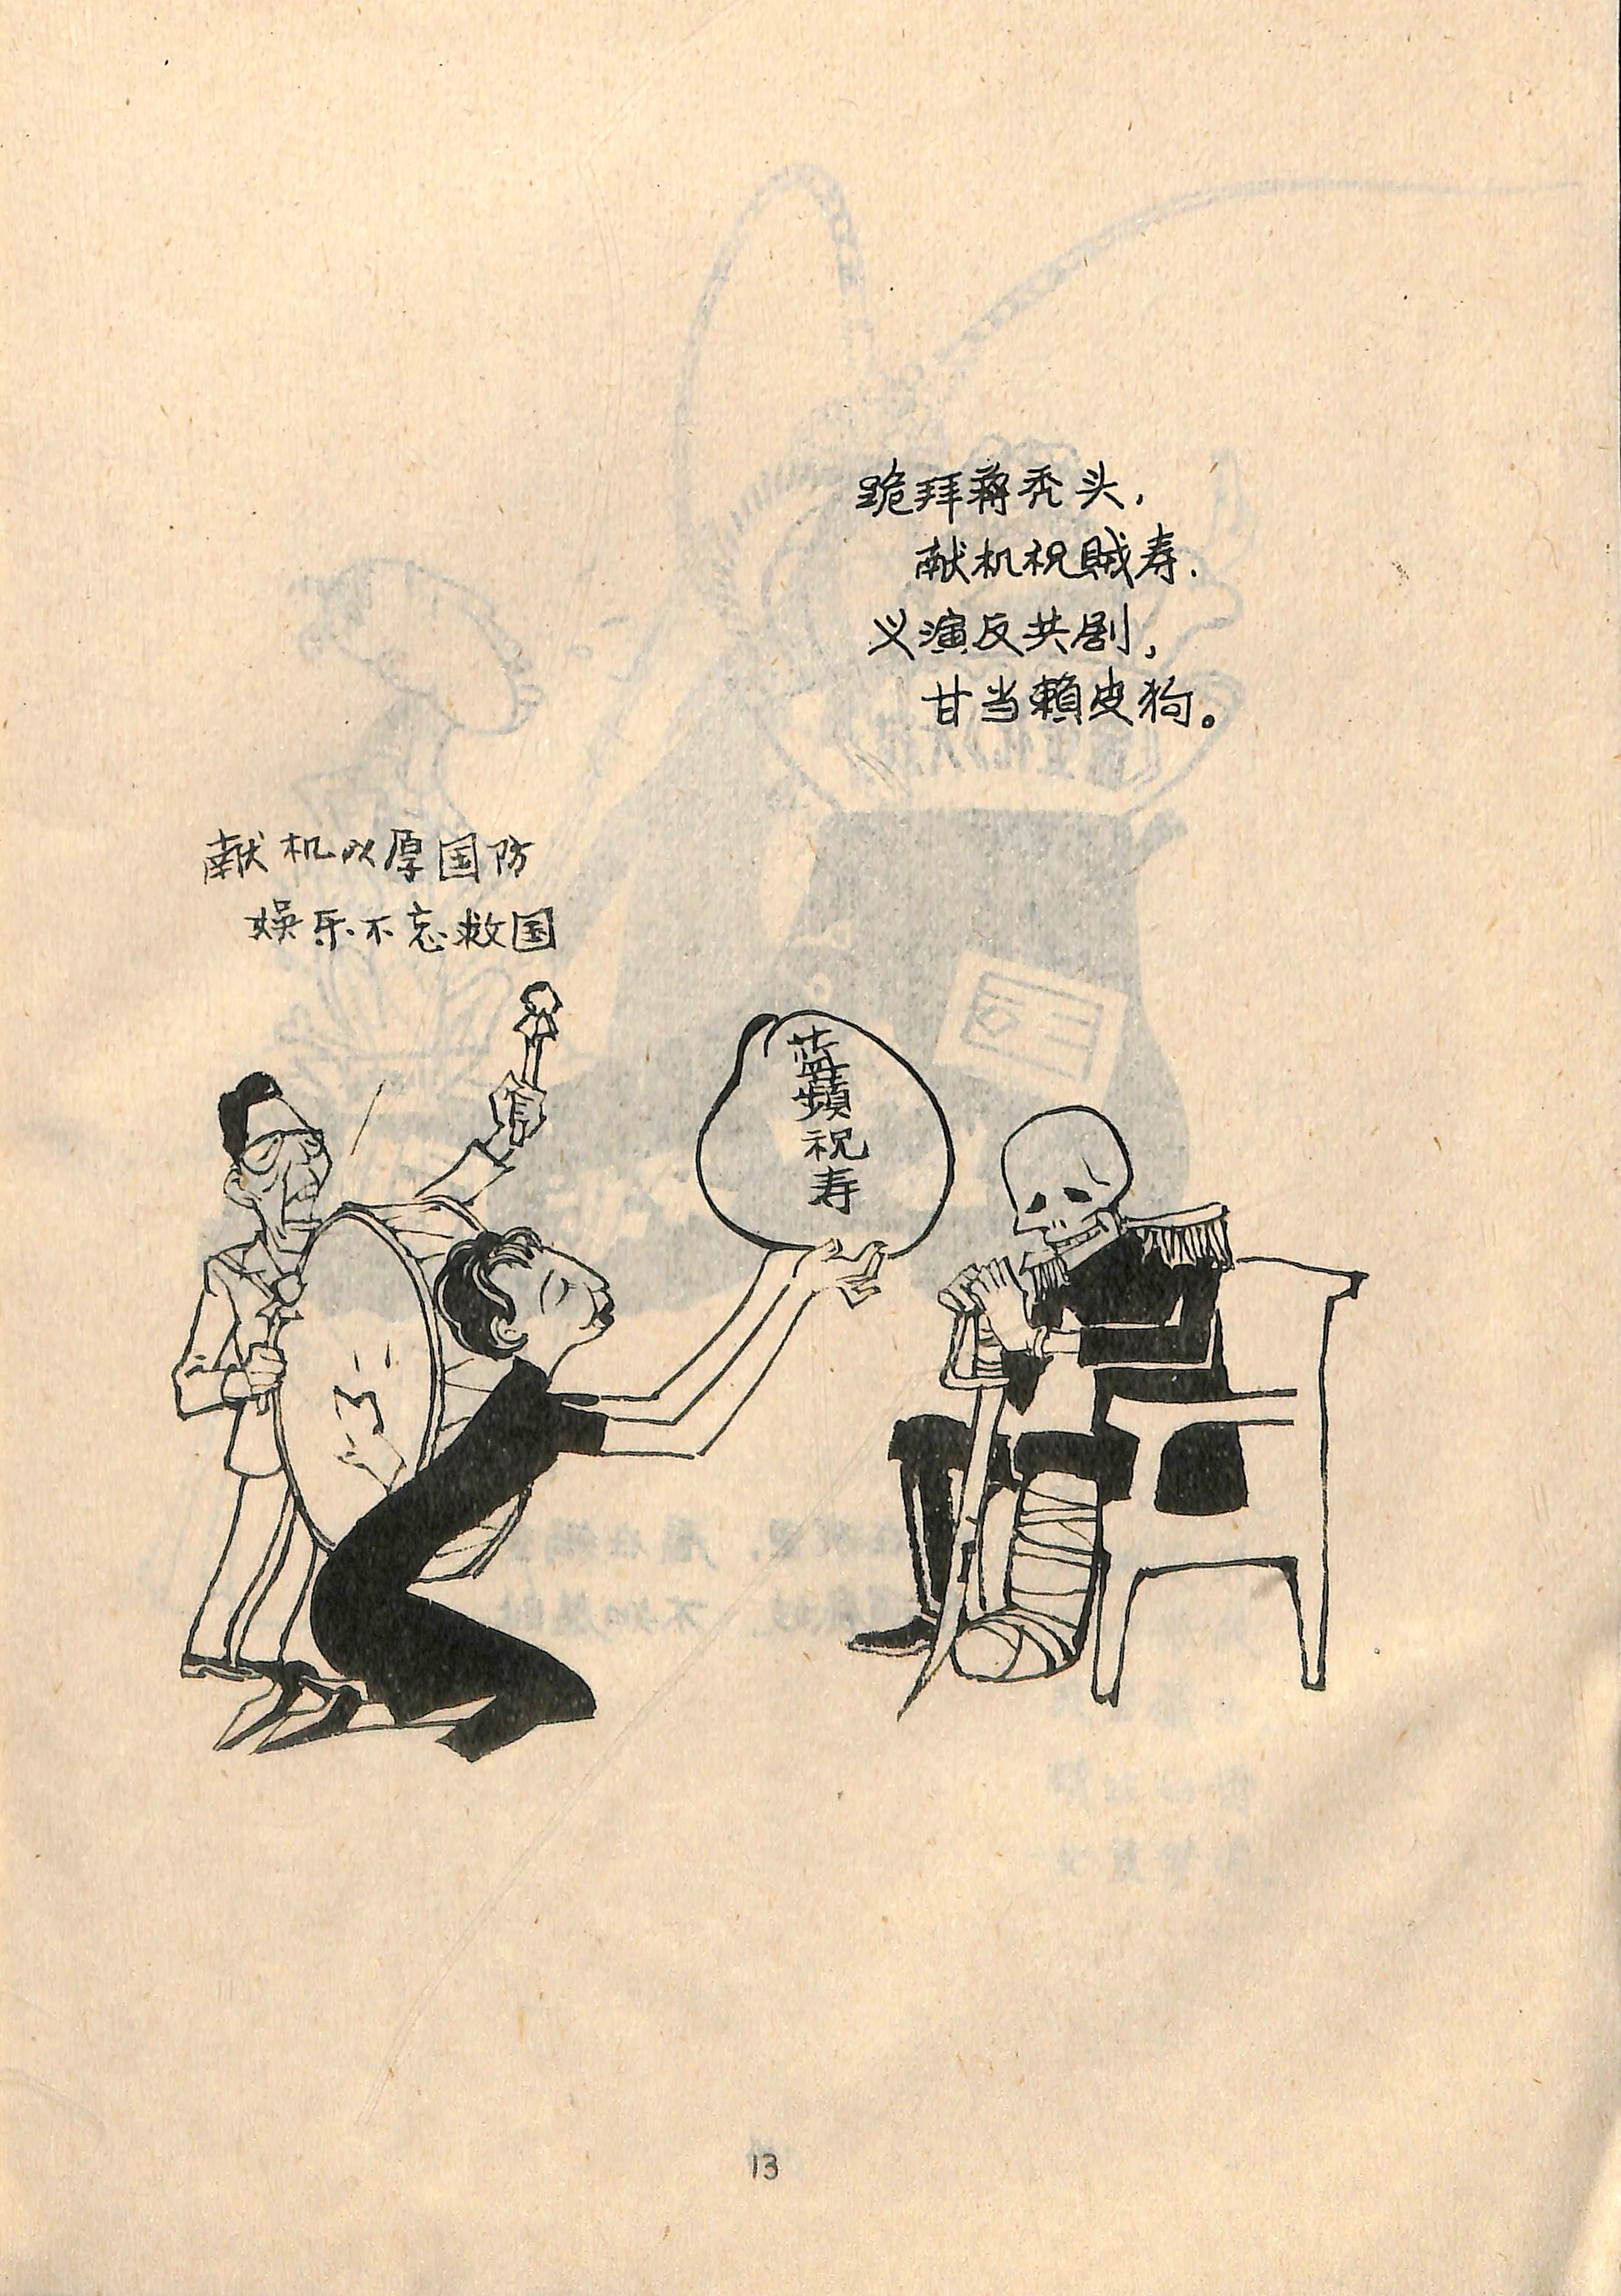 跪拜蒋秃头，
献机祝贼寿．
义演反共剧，
甘当賴皮狗。
献机以厚国防
娱乐不忘救国
蓝蘋祝寿
13